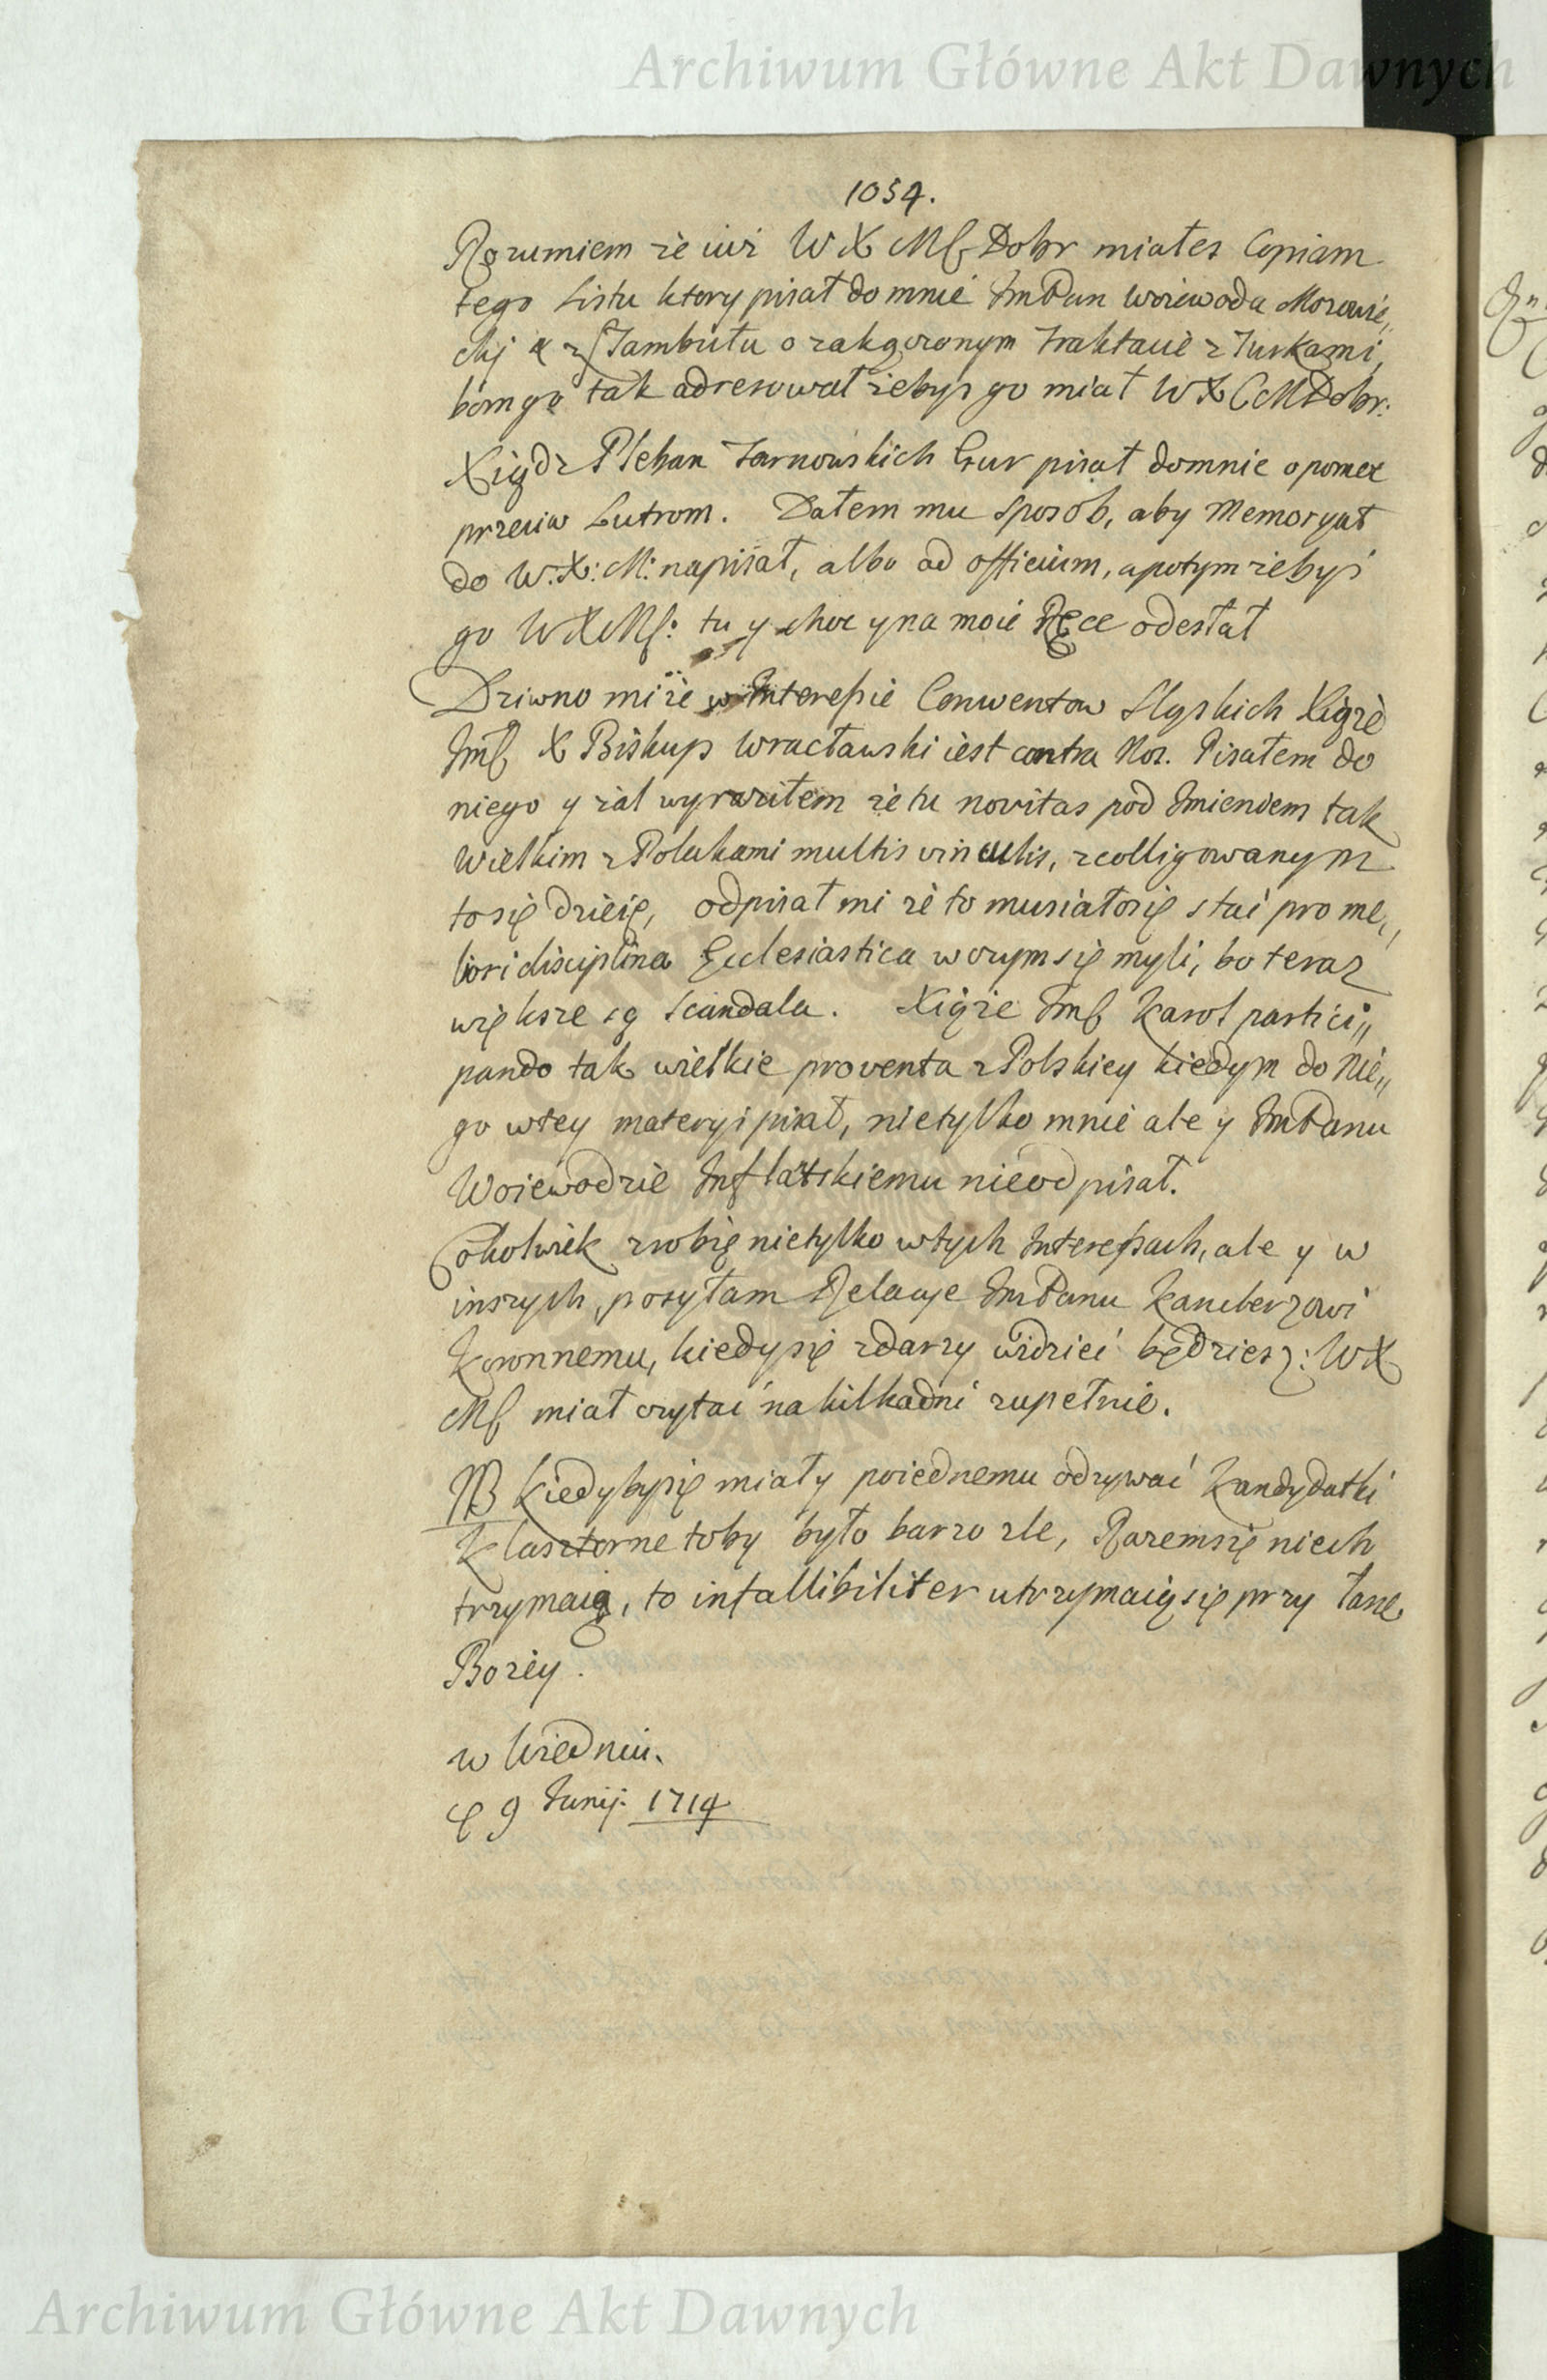 Archiwum Główne Akt Dawnych
1054.
Rozumiem że iuż W X Mć Dobr miałes Copiam
tego Listu ktory pisał do mnie ImPan Woiewoda Mozowie„
cki z Stambułu o zakączonym Traktacie z Turkami,
bom go tak adresował żebys go miał W X C M Dobr:
Xiądz Pleban Tarnowskich Gur pisał domnie o pomoc
przeciw Lutrom. Dałem mu sposób, aby Memoryał
do W: X: M: napisał, albo ad officium, apotym żebyś
go WXMć: tu y choc yna moie Ręce odesłał
Dziwno mi że w Interessie Conwentow Sląskich Xiąże
Imć X Biskup Wracławski iest contra Nos. Pisałem do
niego y żal wyraziłem że tu novitas pod Imieniem tak
Wielkim z Polakami multis vinculis, zcolligowanym
tosię dzieię, odpisał mi że to musiałosię stać pro me„
liori disciplina Ecclesiastica wczym się myli, bo teraz
większe są Scandala. Xiąże Imć Karol partici„
pando tak wielkie proventa z Polskiey kiedym do Nie„
go wtey materyi pisał, nietylko mnie ale y ImPanu
Woiewodzie Inflatskiemu nieodpisał.
Cokolwiek zrobię nietylko wtych Interessach, ale y w
inszych, posyłam Relacye ImPanu Kanclerzowi
Koronnemu, kiedy się zdarzy widzieć będziesz: WX
Mć miał czytać na kilkadni zupełnie.
NB Kiedybysię miały poiednemu odzywać Kandydatki
Klasztorne toby było barzo zle, Razemsię niech
trzymaią, to infallibiliter utrzymaią się przy łasce
Bozey.
w Wiedniu.
9 Junij. 1714
Archiwum Główne Akt Dawnych